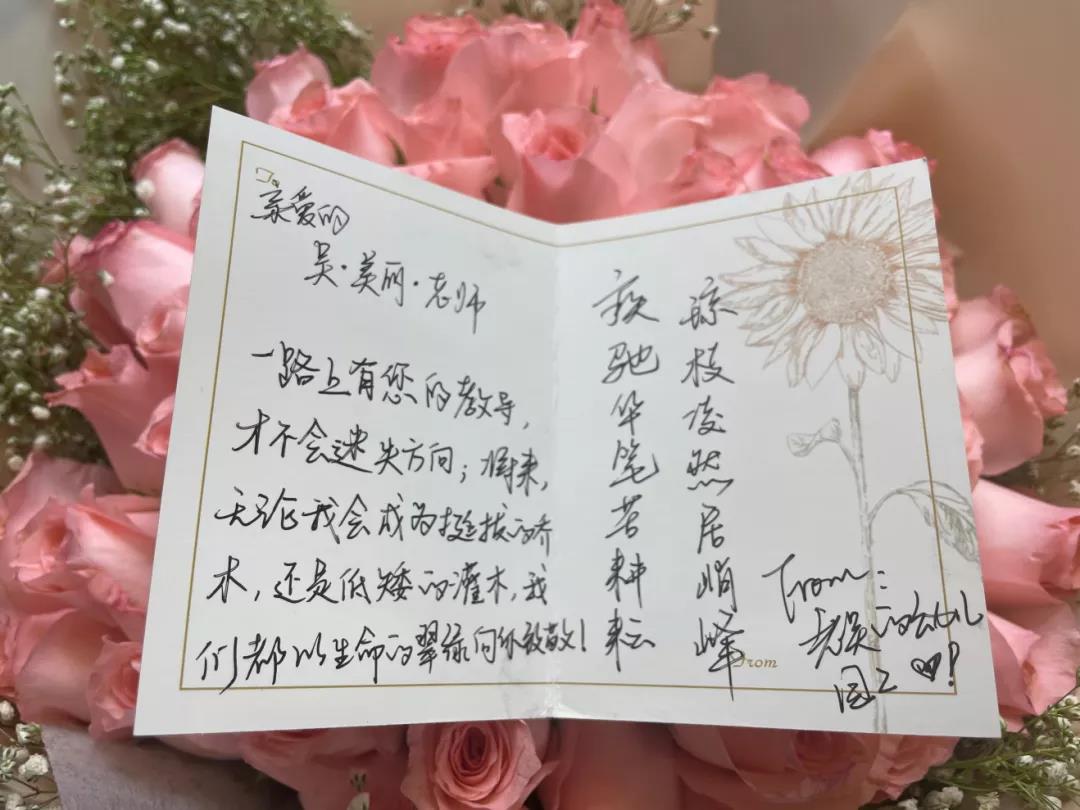 To
亲爱的
吴·美丽·老师
一路上有您的教导,
才不会迷失方向;将来,
无论我会成为挺拔的乔
木,还是低矮的灌木,我
们都以生命的翠绿向你致敬!
琼枝凌然居峭峰
疾驰华笔苦耕耘
From:
老吴的
From